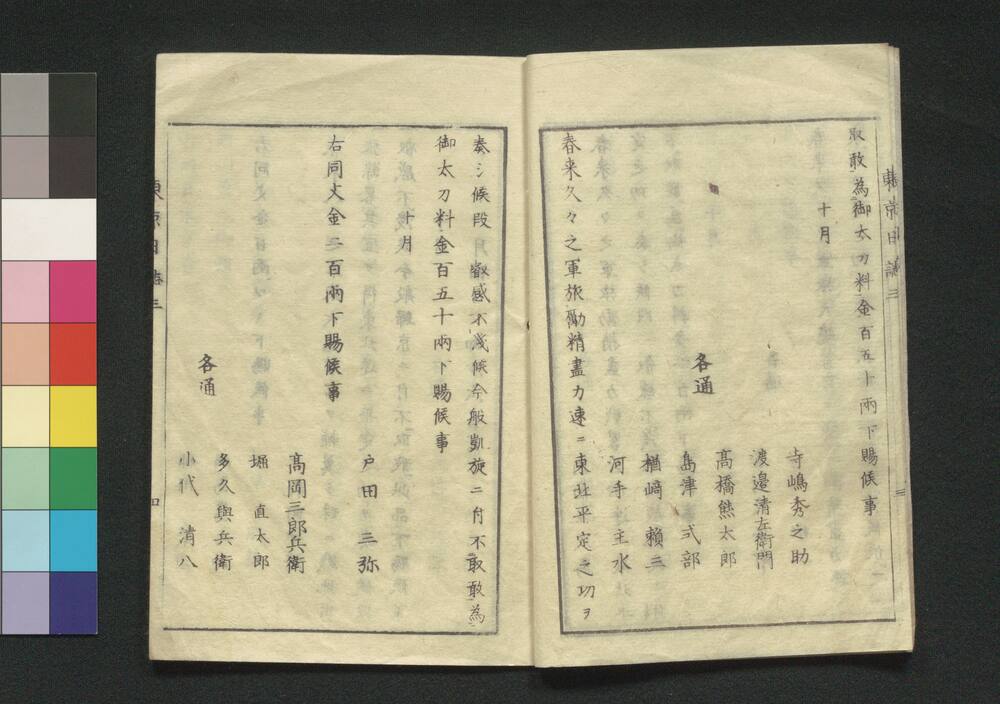 東京日誌三
取敢為御太刀料金百五十兩下賜候事
十月
寺嶋秀之助
渡邉清左衛門
髙橋熊太郎
各通
島津式部
楢﨑頼三
河手主水
春来久々之軍旅勵精盡力速ニ東北平定之功ヲ
奏シ候段
叡感不淺候今般凱旋ニ付不取敢為
御太刀料金百五十兩下賜候事
十月
戸田三弥
右同文金三百兩下賜候事
髙岡三郎兵衛
堀直太郎
各通
多久與兵衛
小代清八
東京日誌三
四
三